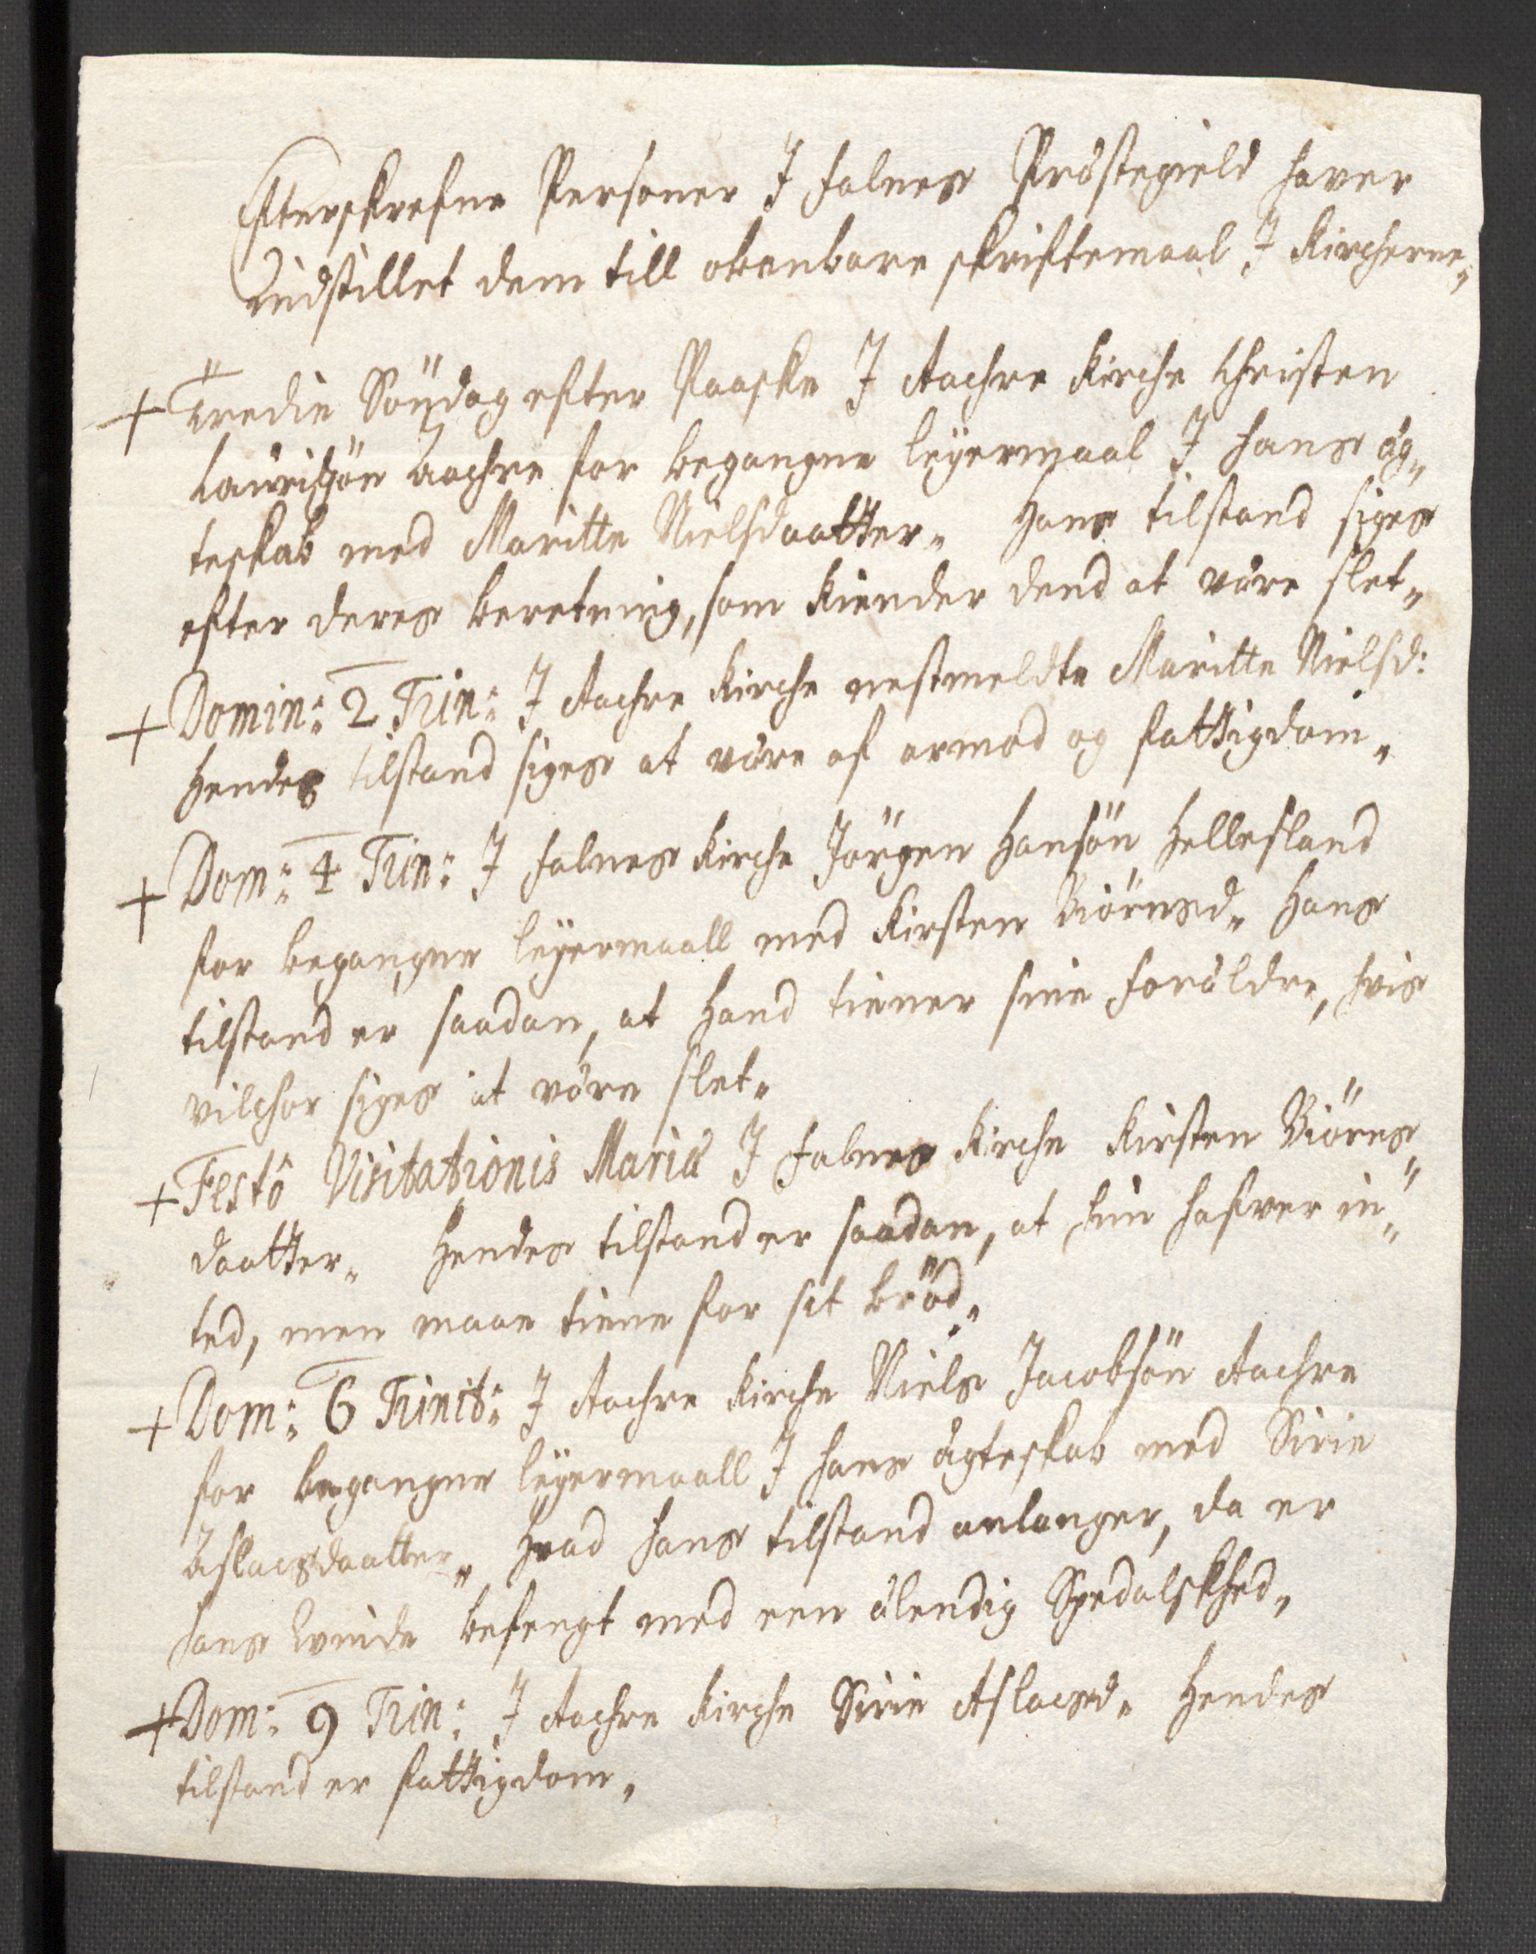 Efterskrefne Personer I Falnes Præstegield haver
Uudstillet dem till obenbare skriftemaal I Kircherne„
+ Tredie Söndag efter Paaske I Aachre Kirche Christen
Lauridsön Aachre for begangne leÿermaal I hans æg„
teskab med Maritte Nielsdaatter„ Hans tilstand siges
efter deres beretning, som kiender dend at være slet„
+ Domin: 2 Trin: I Aachre Kirche nestmeldte Maritte Nielsd:
Hendes tilstand siges at være af armod og fattigdom„
+ Dom: 4 Trin: I Falnes Kirche Jörgen Hansön Hellesland
for begangne leÿermaall med Kirsten Biörnsd„ Hans
tilstand er saadan, at hand tiener sine forældre, hvis
vilchor siges at være slet„
+ Festô Visitationis Mariæ I Falnes Kirche Kirsten Biörns„
daatter„ Hendes tilstand er saadan, at hun hafver in„
ted, men maae tiene for sit bröd„
+ Dom: 6 Trinit: I Aachre Kirche Niels Jacobsön Aachre
for begangne leÿermaall I hans ægteskab med Sirie
Aslacsdaatter„ Hvad hans tilstand anlanger, da er
hans Qvinde befengt med een ælendig Spedalskhed„
+ Dom: 9 Trin: I Aachre Kirche Sirie Aslacsd„ Hendes
tilstand er fattigdom„